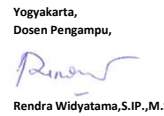 Yogyakarta,
Dosen Pengampu,
Rendra Widyatama,S.IP.,M.